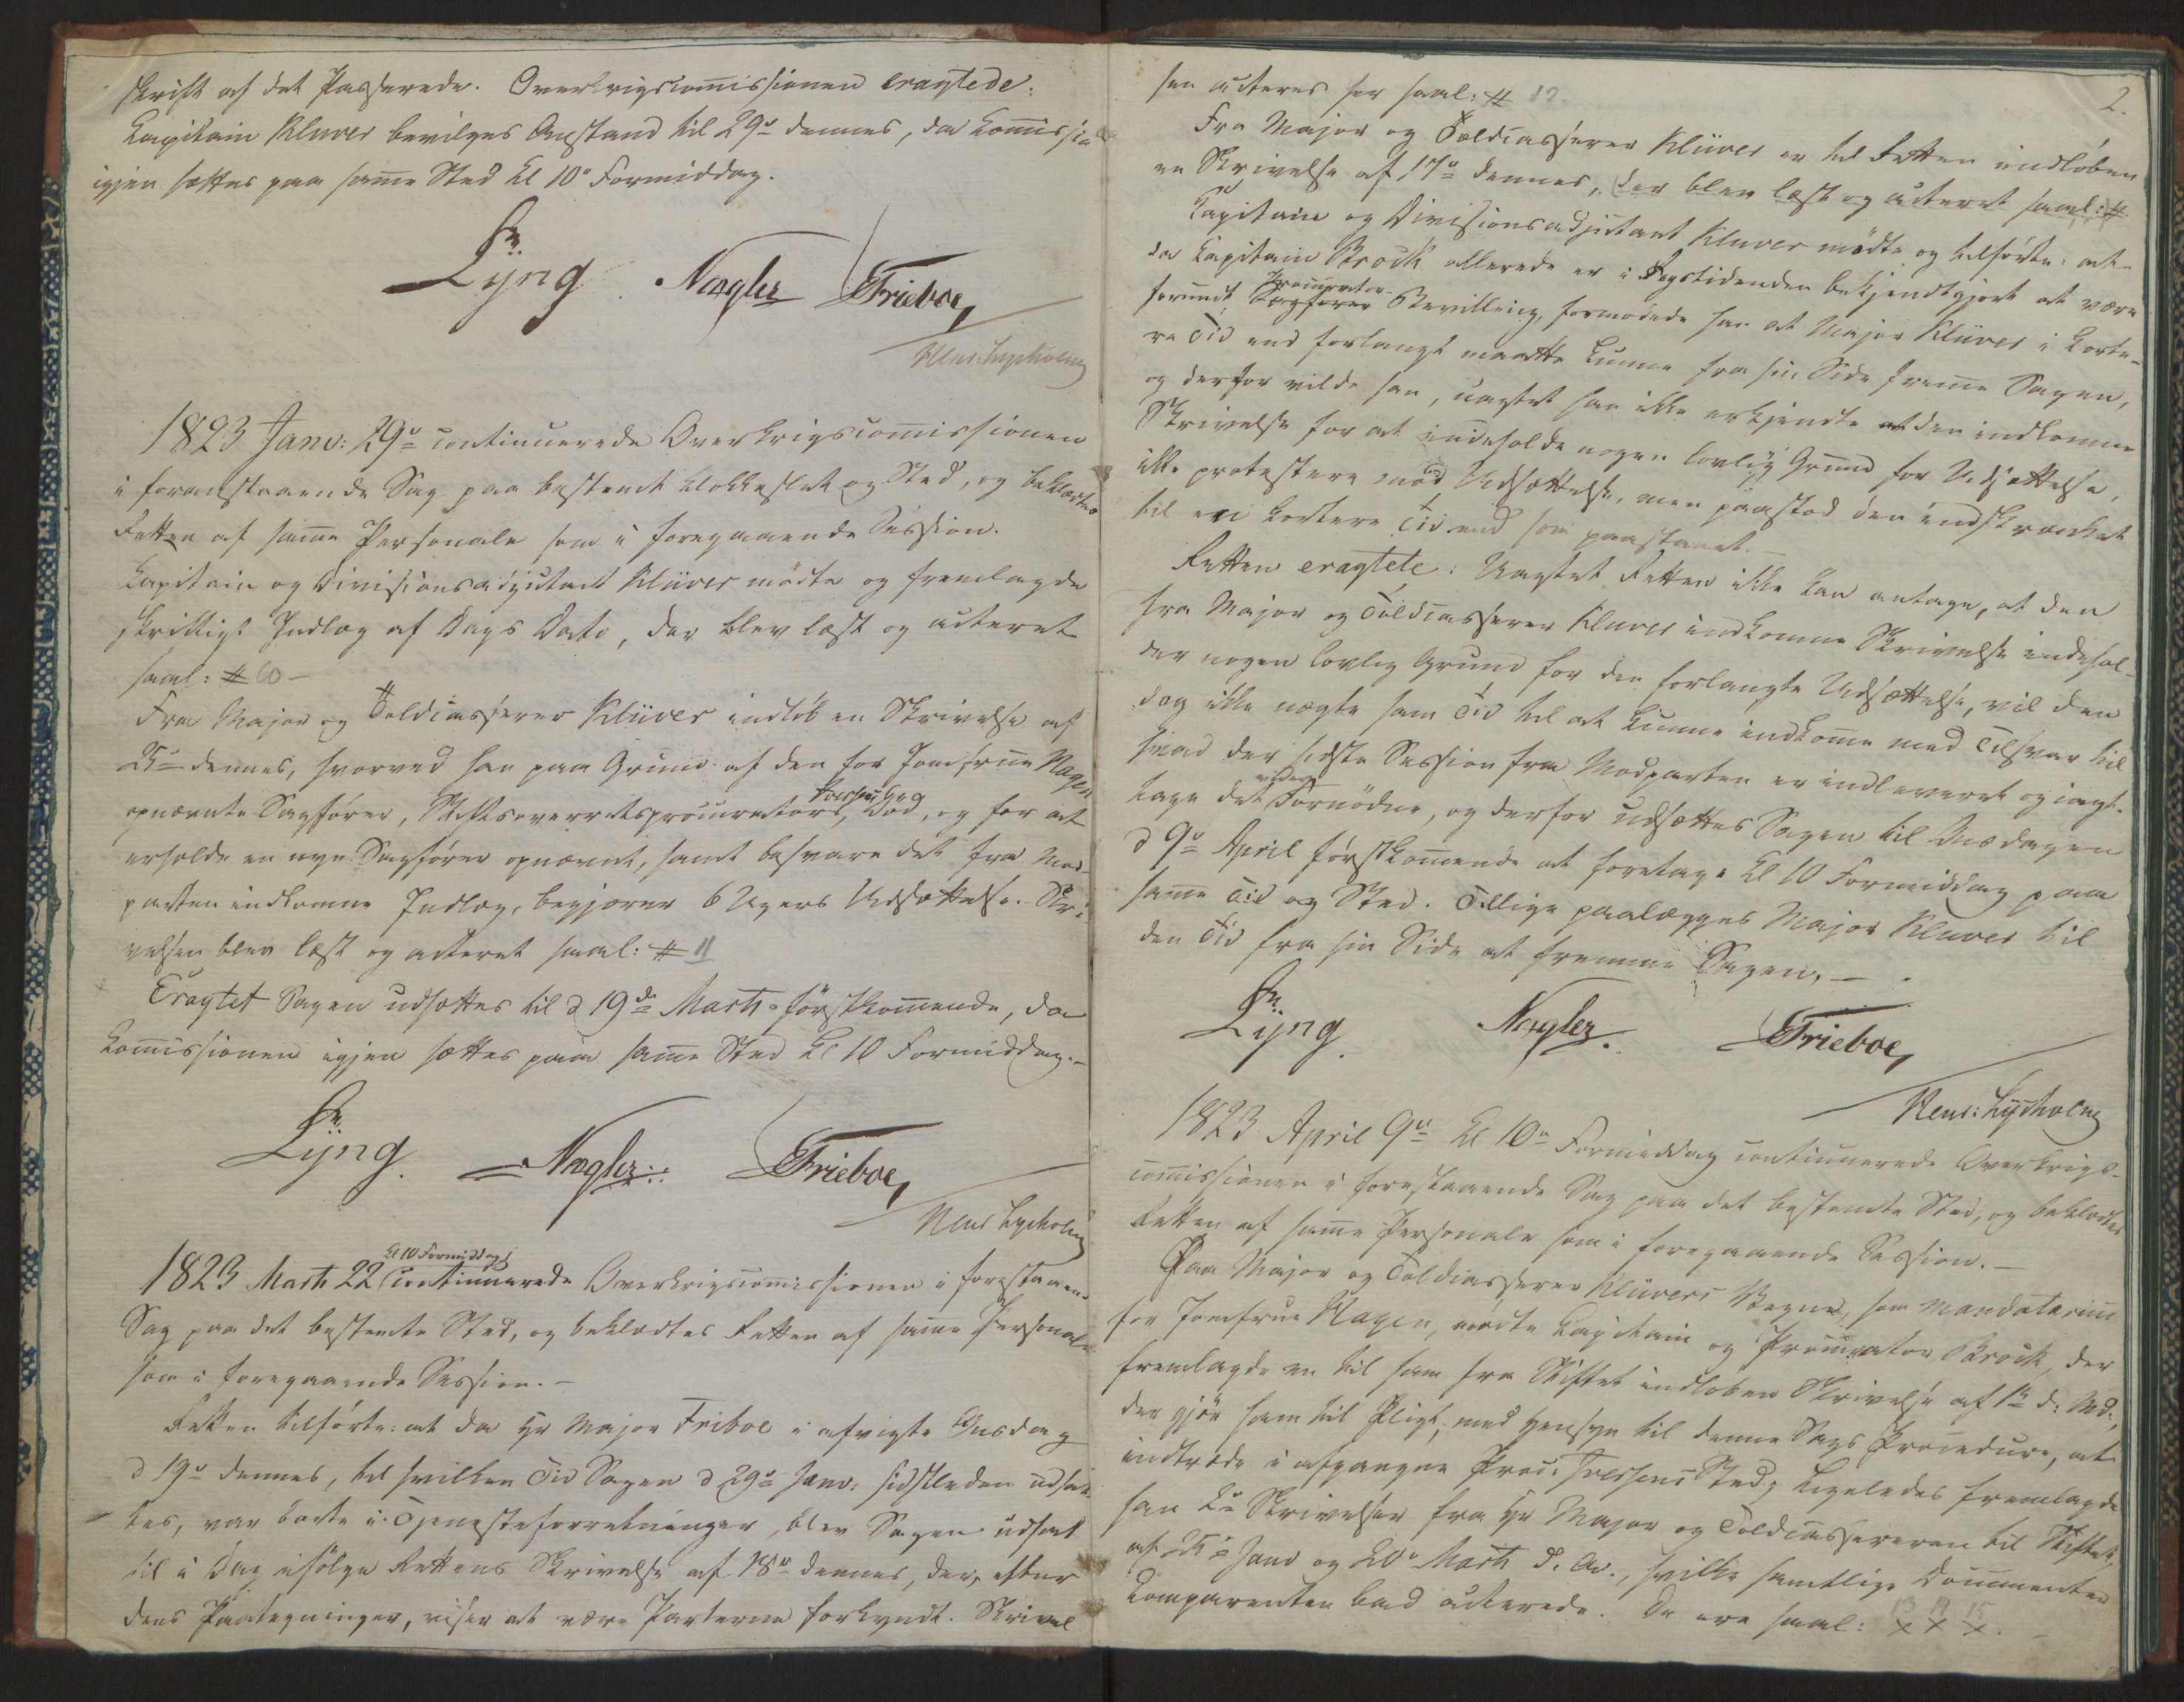 skrift af det Passerede. Overkrigscom̅issionen eragtede:
Capitain Klüver bevilges Anstand til 29de dennes, da Com̅issio
igjen sættes paa sam̅e Sted Kl 10 Formiddag.
Lyng Nægler Frieboe,
Hens: Lysholm
1823 Janv: 29de continuerede Overkrigscom̅issionen
i foranstaaende Sag paa bestemt Klokkeslet og Sted, og beklædtes
Retten af sam̅e Personale som i foregaaende Session.
Capitain og Divisionsadjutant Klüver mødte og fremlagde
skriftligt Indlæg af Dags Dato, der blev læst og acteret
saal: # 10 -
Fra Major og Toldcasserer Klüver indløb en Skrivelse af
25de dennes, hvorved han paa Grund af den for Jomfrue Hagen
opnævnte Sagfører, Stiftsoverretsprocurators, Død, og for at
erholde en nye Sagfører opnævnt, samt besvare det fra Mod-
parten indkomne Indlæg, begjærer 6 Ugers Udsættelse. Skri-
velsen blev læst og acteret saal: # 11
Eragtet Sagen udsættes til d 19de Marts førstkom̅ende, da
Com̅issionen igjen sættes paa sam̅e Sted Kl 10 Formiddag. -
Lyng. Nægler Frieboe,
Hens Lysholm
Kl 10 Formiddag
1823 Marts 22 continuerede Overkrigscom̅issionen i forestaaen-
Sag paa det bestemte Sted, og beklædtes Retten af sam̅e Personale
som i foregaaende Session. -
Retten tilførte: at da Hr Major Friboe i afvigte Onsdag
d 19de dennes, til hvilken Tid Sagen d 29de Janv: sidstleden udsat-
tes, var borte i Tjenesteforretninger, blev Sagen udsat
til i Dag ifølge Rettens Skrivelse af 18de dennes, der, efter
dens Paategninger, viser at være Parterne forkyndt. Skrivel
2.
sen acteres her saal: # 12.
Fra Major og Toldcasserer Klüver er til Retten indløben
en Skrivelse af 17de dennes, der blev læst og acteret saal: #
Capitain og Divisionsadjutant Klüver mødte og tilførte: at
da Capitain Brock allerede er i Dagstidenden bekjendtgjort at være
forundt Procurator Bevilling, formodede han at Major Klüver i korte-
re Tid end forlangt maatte kunne fra sin Side frem̅e Sagen,
og derfor vilde han, uagtet han ikke erkjendte at den indkomne
Skrivelse for at indeholde nogen lovlig Grund for Udsættelse,
ikke protestere mod Udsættelse, men paastod den indskrænket
til en kortere Tid end som paastaaet. -
Retten eragtede: Uagtet Retten ikke kan antage, at den
fra Major og Toldcasserer Klüver indkomne Skrivelse indehol-
der nogen lovlig Grund for den forlangte Udsættelse, vil den
dog ikke nægte ham Tid til at kunne indkom̅e med Tilsvar til
hvad der sidste Session fra Modparten er indleveret og iagt-
tage det videre Fornødne, og derfor udsættes Sagen til Onsdagen
d 9de April førstkom̅ende at foretages Kl 10 Formiddag paa
sam̅e Tid og Sted. Tillige paalægges Major Klüver til
den Tid fra sin Side at fremme Sagen. -
Lyng. Nægler. Frieboe,
Hens: Lysholm
1823 April 9de Kl 10 Formiddag continuerede Overkrigs-
com̅issionen i forestaaende Sag paa det bestemte Sted, og beklædtes
Retten af sam̅e Personale som i foregaaende Session. -
Paa Major og Toldcasserer Klüvers Vegne, som Mandatarius
for Jomfrue Hagen, mødte Capitain og Procurator Brock, der
fremlagde en til ham fra Stiftet indløben Skrivelse af 1ste d: Md:,
der gjør ham til Pligt, med Hensyn til denne Sags Procedure, at
indtræde i afgangne Proc: Sted; ligeledes fremlagde
han 2de Skrivelser fra Hr Major og Toldcassereren til Stiftet,
af 25de Janv og 20de Marts d. A., hvilke samtlige Documenter
Comparenten bad acterede. De ere saal: 13 14 15